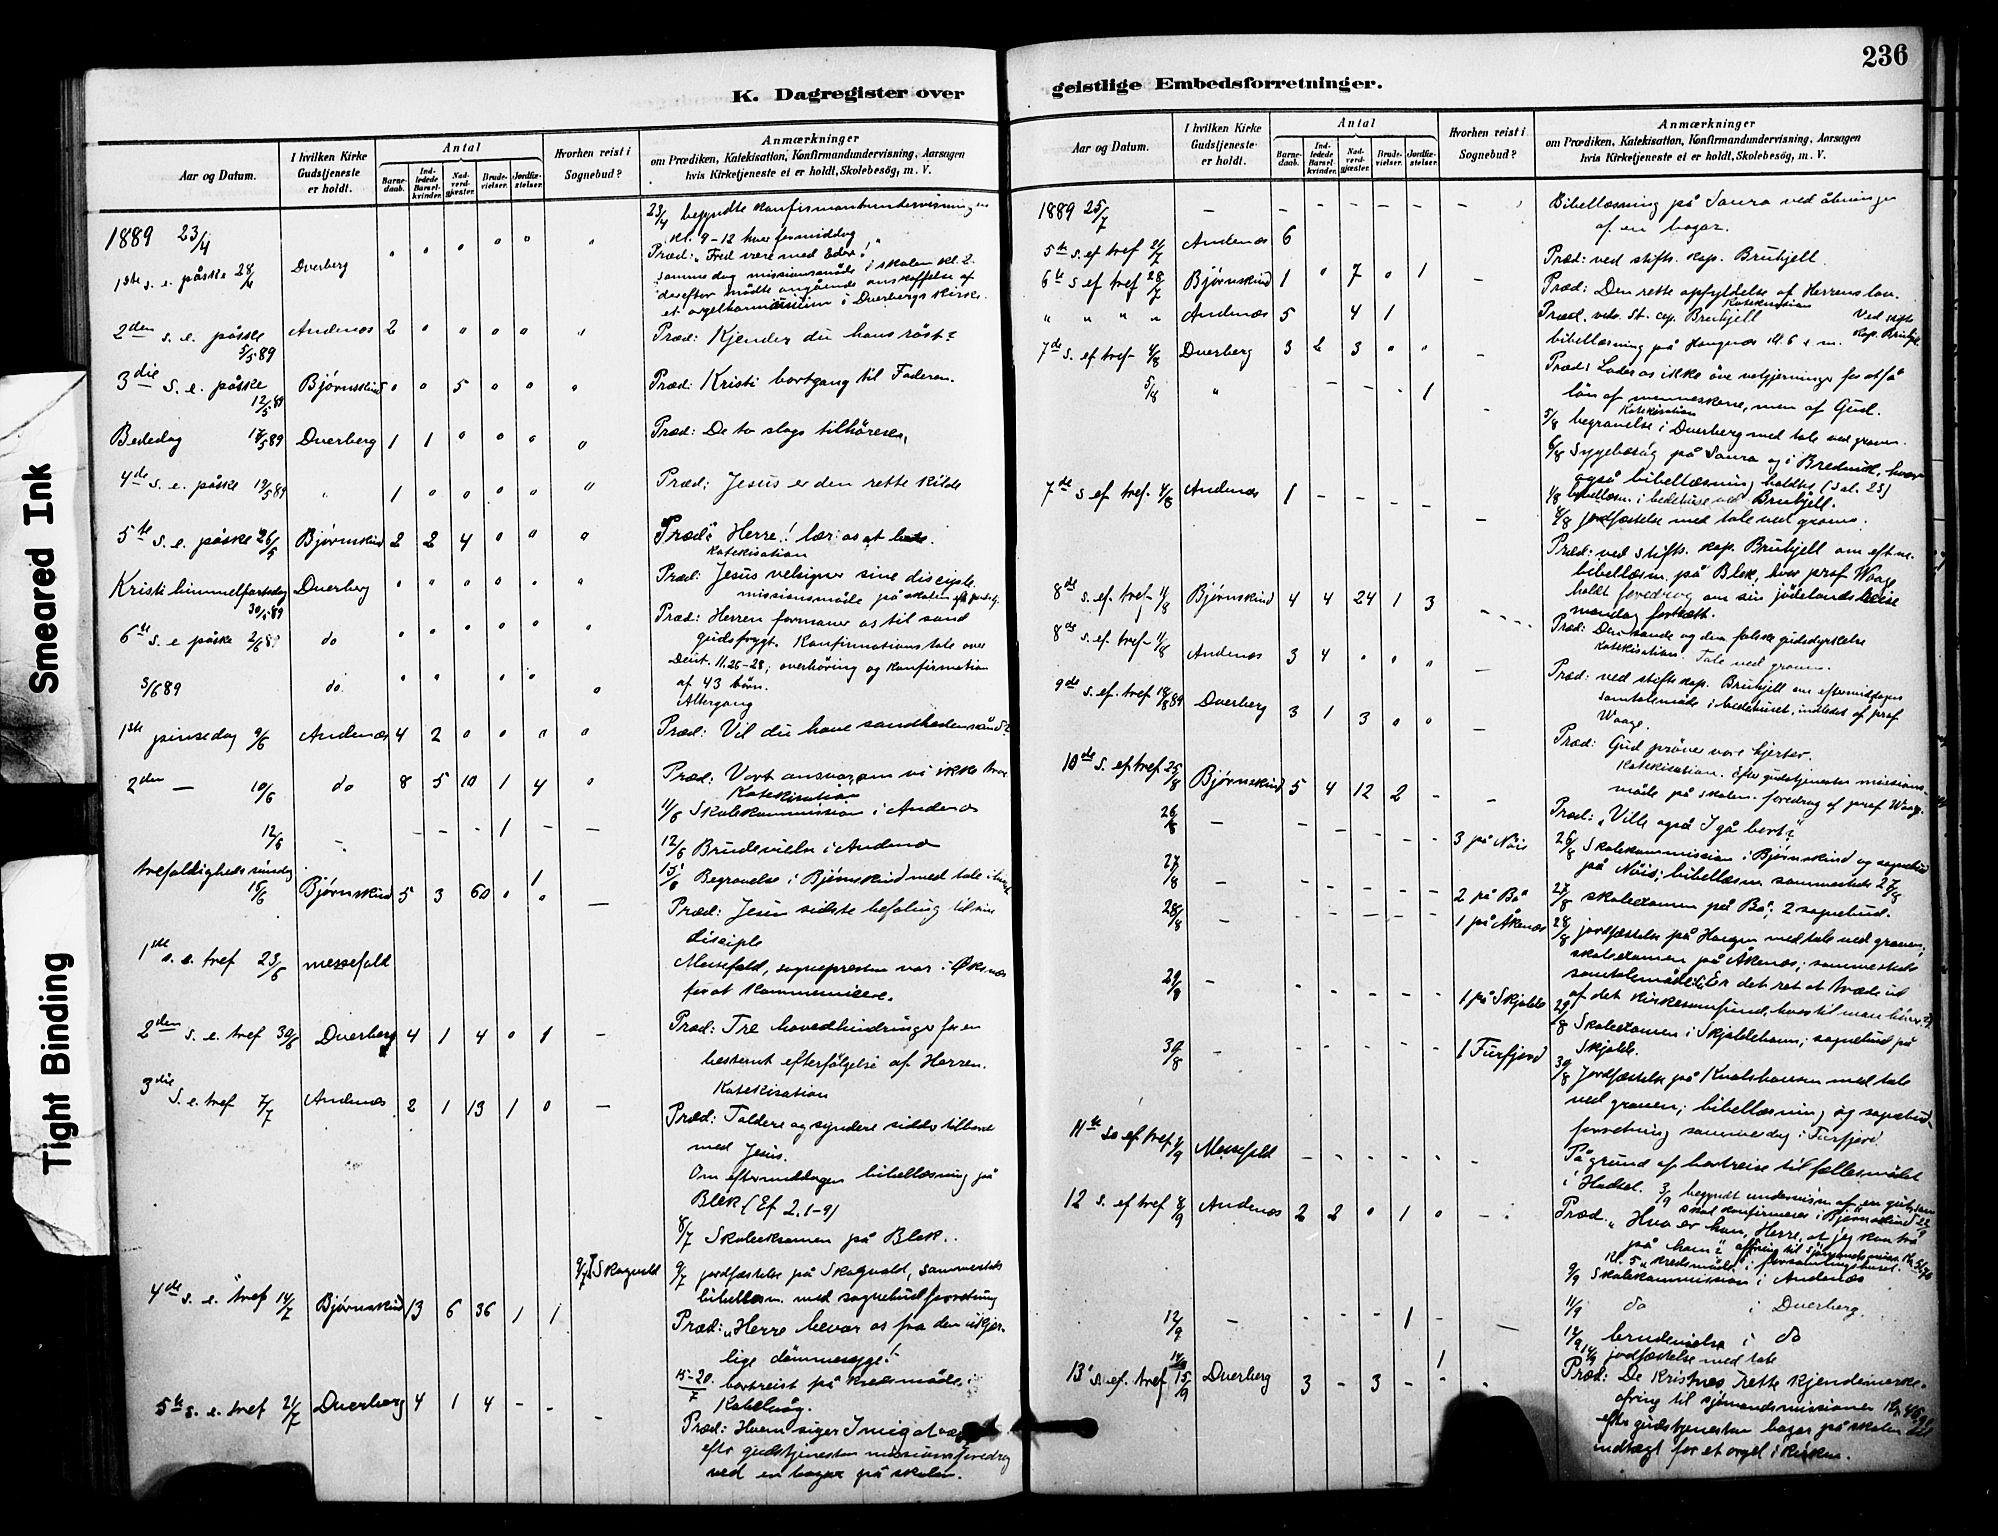 236
K. Dagregister over
geistlige Embedsforretninger.
Aar og Datum.
I hvilken Kirke Gudstjeneste er holdt.
Antal
Barnedaab.
Indledede Barselkvinder.
Nadverdgjæster.
Brudevielser.
Jordfæstelser.
Hvorhen reist i Sognebud?
Anmærkninger
om Prædiken, Katekisation, Konfirmandundervisning, Aarsagen
hvis Kirketjeneste ei er holdt, Skolebesög, m. V.
1889 23/4 23/4 begyndte konfirmantundervisningen
kl. 9-12 hver formiddag
1ste s. e. påske 28/4 Dverberg Præd: "Fred være med Eder!"
samme dag missionsmöde i skolen kl. 2.
derefter mödte angående anskaffelse af
et orgelharmonium i Dverbergs kirke.
2den s. e. påske 5/5 89 Andenæs 2 " " " " " Præd: Kjender du hans röst?
3die s. e. påske 12/5 89 Bjørnskind " " 5 " " " Præd: Kristi bortgang til Faderen.
Bededag 17/5 89 Dverberg 1 1 " " " " Præd: De to slags tilhörere.
4de s. e. påske 19/5 89 " 1 " " " " " Præd: Jesus er den rette kilde
5te s. e. påske 26/5 Bjørnskind 2 2 4 " " " Præd: Herre! lær os at bede.
Katekisation
Kristi himmelfartsdag 30/5 89 Dverberg " " " " " " Præd: Jesus velsigner sine disciple.
missionsmöde på skolen
6te s. e påske 2/6 89 do " " " " " " Præd: Herren formaner os til sand
gudsfrygt. Konfirmationstale over
Deut. 11.26-28; overhöring og konfirmation
3/6 89 do. " " " " " af 43 börn.
Altergang
1ste pinsedag 9/6 Andenæs 4 2 " " " " Præd: Vil du have sandhedens ånd?
2den — 10/6 do 8 5 10 1 4 " Præd: Vort ansvar, om vi ikke tror
Katekisation
11/6 Skolekommission i Andenæs
12/6 - - - - 1 - - 12/6 Brudevielse i Andenæs
trefoldigheds söndag 1 15/6 Begravelse i Bjørnskind med tale i
15/6 Bjørnskind 5 3 60 " " — Præd: Jesu sidste befaling til sine
disciple
1ste s. e. tref 23/6 messefald Messefald, sognepresten var i Øksnæs
for at kommunicere.
2den s. e. tref 30/6 Dverberg 4 1 4 0 1 - Præd: Tre hovedhindringer for en
bestemt efterfölgelse af Herren.
Katekisation
3die s. e. tref 7/7 Andenæs 2 1 13 1 0 — Præd: Toldere og syndere sidde tilbords
med Jesus.
Om eftermiddagen bibellæsning på
Blek (Ef 2. 1-9)
8/7 Skoleeksamen på Blek.
9/7 1 Skogvold 9/7 jordfæstelse på Skogvold, sammesteds
bibellæsn. med sognebudforretning
4de s. e. tref 14/7 Bjørnskind 13 6 36 1 1 Præd: "Herre bevar os fra den ukjær-
lige dömmesyge!"
15-20/7 bortreist på kredsmöde i
Kabelvåg.
5te s. e. tref 21/7 Dverberg 4 1 4 - - — Præd: Hvem siger I mig at være
efter gudstjenesten missionsforedrag
ved en bazar på skolen.
1889 25/7 - - - - - - - Bibellæsning på Saura ved åbningen
af en bazar.
5te s. ef tref 21/7 Andenæs 6 Præd: ved stifts. kap. Bruhjell.
6te s ef tref 28/7 Bjørnskind 1 " 7 " 1 - Præd: Den rette opfyldelse af Herrens lov.
Katekisation
" " " " Andenæs 5 4 1 Præd. ved. st. cap. Bruhjell
7de s. ef tref 4/8 Dverberg 3 2 3 " " - bibellæsning på Haugnæs kl. 6 e. m. Ved stifts kap. Bruhjell
5/8 " - - - 1 - Præd: Lader os ikke öve velgjerninger for at få
lön af menneskene, men af Gud.
Katekisation
5/8 begravelse i Dverberg med tale ved graven.
6/8 Sygebesög på Saura og i Bredvik, hvor
også bibellæsning holdtes (Sal. 25)
7de s ef tref. 4/8 Andenæs 1 - - - - - bibellæsn. i bedehuset ved Bruhjell.
jordfæstelse med tale ved graven.
Præd: ved stifts. kap. Bruhjell om efterm.
bibellæsn. på Blek, hvor prof Waage
8de s. ef. tref 11/8 Bjørnskind 4 4 24 1 3 - holdt foredrag om sin jödelandsreise
mandag fortsatt.
8de s. ef. tref 11/8 Andenæs 3 4 " " " - Præd: Den sande og den falske gudsdyrkelse
Katekisation. Tale ved graven.
9de s. ef. tref 18/8 89 Dverberg 3 1 3 0 0 - Præd: ved stifts kap. Bruhjell om eftermiddagen
samtalemöde i bedehuset, indledet af prof
Waage.
10de s. ef. tref 25/8 Bjørnskind 5 4 12 2 - - Præd: Gud pröver vore hjerter.
Katekisation. Efter gudstjenesten missions-
möde på skolen. foredrag af prof Waage.
Præd: "Ville også I gå bort?"
26/8 - - - - - - 3 på Nöis 26/8 Skolekommission i Bjørnskind og sognebud
på Nöis; bibellæsn sammesteds 27/8
27/8 - - - - - - 2 på Bö 27/8 skoleexamen på Bö; 2 sognebud.
28/8 - - - - - - 1 på Åknæs 28/8 jordfæstelse på Haugen med tale ved graven;
skoleexamen på Åknæs; sammesteds
samtalemöde: Er det ret at træde ud
af det kirkesamfund, hvortil man hörer
29/8 - - - - - - 1 på Skjolde 29/8 Skoleexamen i Skjoldehavn; sognebud på
Skjolde.
30/8 - - - - - - 1 Furfjord 30/8 Jordfæstelse på Kvalshausen med tale
ved graven; bibellæsning og sognebud-
forretning samme dag i Furfjord.
11te s. ef tref 1/9 Messefald - - - - - - På grund af bortreise til fællesmödet
i Hadsel. 3/9 begyndt undervisn. af en gut, som
skal konfirmeres i Bjørnskind
12 s. ef tref 8/9 Andenæs 2 2 0 1 0 - Præd: "Hvo er han, Herre, at jeg kan tro
på ham?" offring til sjömandsmiss.
kl. 5 kredsmöde i forsamlingshuset.
9/9 Skolekommission i Andenæs
11/9 do i Dverberg.
12/9 - - - - 1 - - 12/9 brudevielse i do
14/9 1 14/9 jordfæstelse med tale
13de s. ef. tref 15/9 Dverberg 3 - 3 - - - Præd: De Kristnes rette kjendemærke.
ofring til sjömandsmissionen
efter gudstjenesten bazar på skolen til
indtægt for et orgel i kirken.
Smeared Ink
Tight Binding